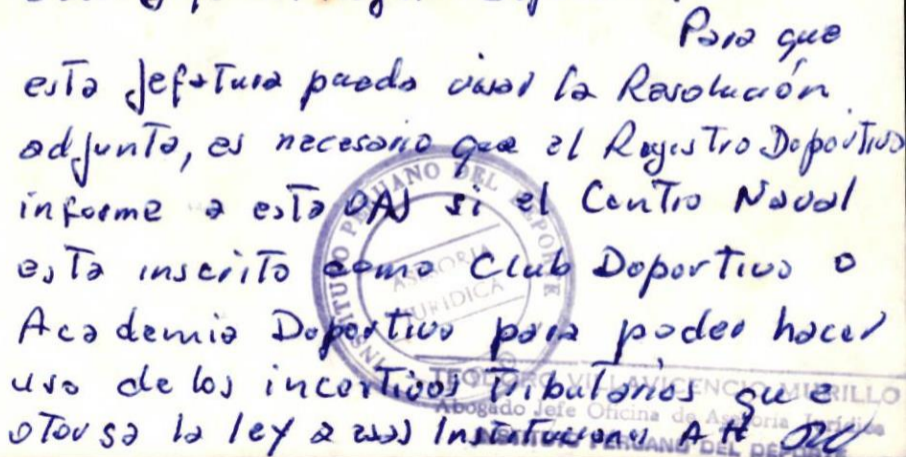 Para que
esta Jefatura pueda visar la Resolución
adjunta, es necesario que el Registro Deportivo
informe a esta OAJ si el Centro Naval
esta inscrito como Club Deportivo o
Academia Deportiva para poder hacer
uso de los incentivos Tributarios que
otorga la ley a esas Instituciones
INSTITUTO PERUANO DEL DEPORTE
ASESORIA
JURIDICA
TEODORO VILLAVICENCIO MURILLO
Abogado Jefe Oficina de Asesoria Jurídica
INSTITUTO PERUANO DEL DEPORTE